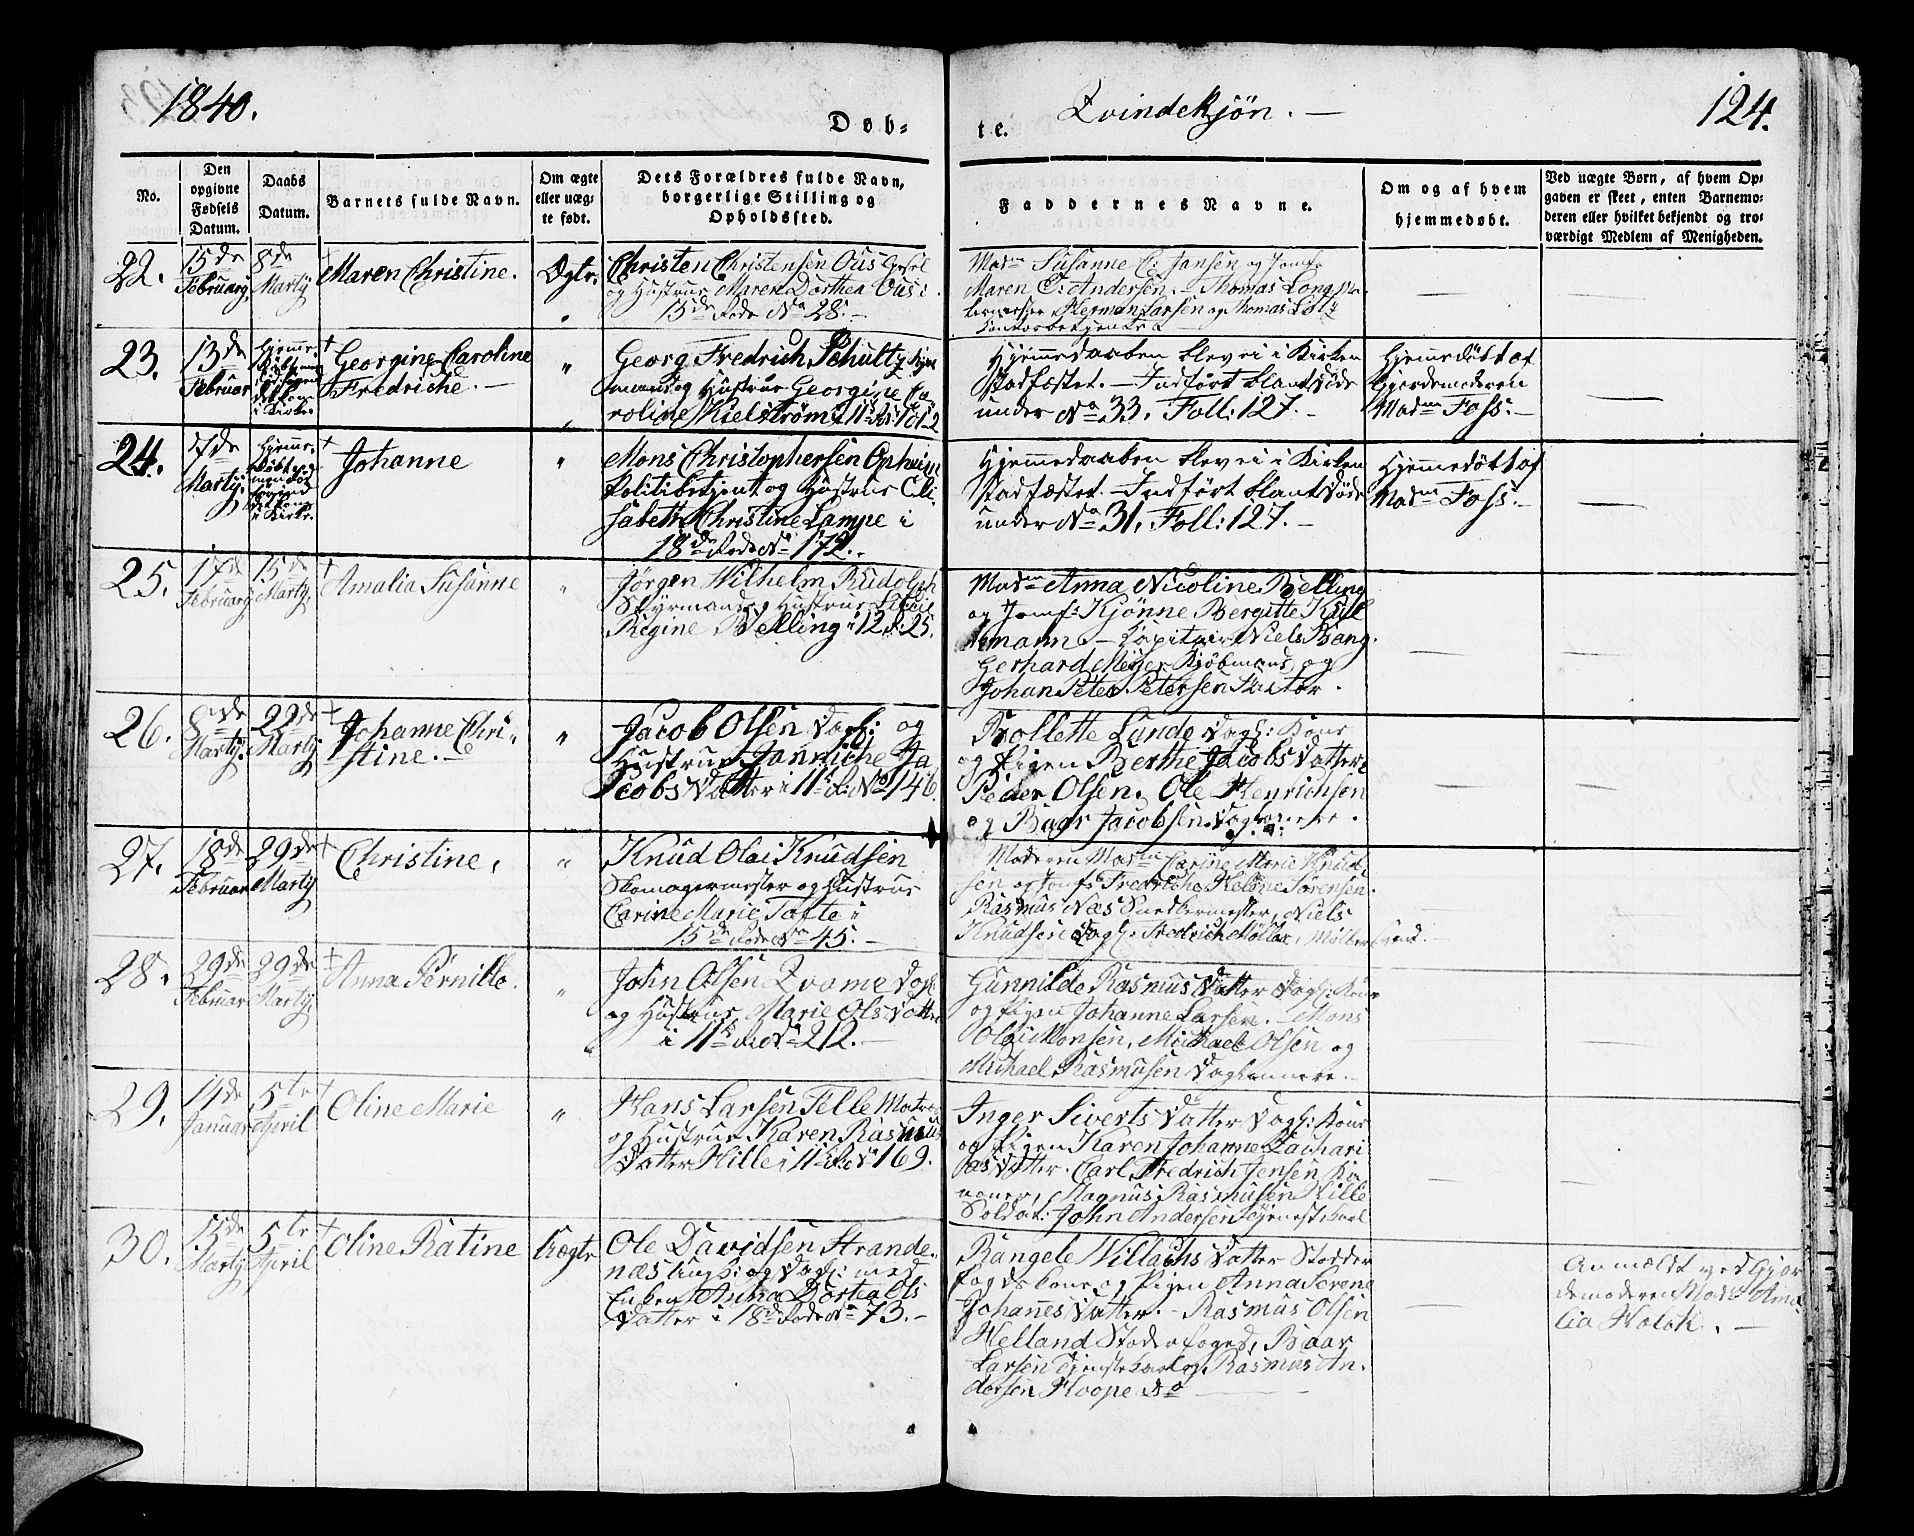 1840.
Døb-
te.
Qvindekjøn. —
124.
No.
Den opgivne Fødsels Datum.
Daabs Datum.
Barnets fulde Navn.
Om ægte eller uæg- te født.
Dets Forældres fulde Navn, borgerlige Stilling og Opholdssted.
Faddernes Navne.
Om og af hvem hjemmedøbt.
Ved uægte Børn, af hvem Op- gaven er skeet, enten Barnemo- deren eller hvilket bekjendt og tro- værdigt Medlem af Menigheden.
22.
15de Februarj
8de Martj
Maren Christine.
Ægte.
Christen Christensen Ous
og Hustrue Maren Dorthea Ous i
15de Rode No 28. —
Madm Susanne C: Jansen og Jomf:
Maren C: Andersen. — Thomas Long
Herman Larsen og Thomas
23.
13de Februar
Georgine Caroline
Fredriche. —
Georg Fredrich Schultz
mand og Hustrue Georgine Ca
roline Kielstrøm i 11te Rode No 101-2
Hjemmedaaben blev ei i Kirken
stadfæstet. — Indført blant Døde
under No 33. Foll: 127. —
Hjemmedøbt af
Gjordemoderen
Madm Foss. —
24.
7de Martj
Johanne
Mons Christophersen Opheim
Politibetjent og Hustrue Eli
sabeth Christine Lampe i
18de Rode No 172.
Hjemmedaaben blev ei i Kirken
stadfæstet. — Indført blant Døde
under No 31. Foll: 127. —
Hjemmedøbt af
Madm Foss. —
25.
17de Februarj
15de Martj.
Amalia Susanne
Jørgen Wilhelm Rudolph
Styrmand og Hustrue
Regine Belling i 12 R: 25.
Madm Anna Nicoline Belling
og Jomf: Kjønne Bergitte
mann. — Capitain Niels Bang.
Gerhard Meyer Kjøbmand, og
Johan Peter Petersen Factor.
26.
8de Martj.
22de Martj
Johanne Chri-
stine. —
Jacob Olsen Dagl: og
Hustrue Janniche Ja
cobs Datter i 11te R: No 146.
Bollette Lunde Dagl: Kone
og Pigen Berthe Jacobs Datter
Peder Olsen, Ole Henrichsen
og Baar Jacobsen, Daglønnere.
27.
18de Februar
29de Martj
Christine.
Knud Olai Knudsen
Skomagermester og Hustrue
Carine Marie Tofte i
15de Rode No 45. —
Moderen Madm Carine Marie Knud
sen og Jomf: Fredriche Helene Sørensen.
Rasmus Næs Snedkermester, Niels
Knudsen Dagl: Fredrich Møller, Møllersvend.
28.
29de Februar
29de Martj.
Anna Pernille.
John Olsen Qvame Dagl
og Hustrue Marie Ols Datter
i 11te Rode No 212. —
Gunnilde Rasmus Datter Dagl: Kone
og Pigen Johanne Larsen. — Mons
Olai Monsen, Michael Olsen og
Michael Rasmusen Daglønnere. —
29.
14de Januar
5te April
Oline Marie
Hans Larsen Telle Matros
og Hustrue Karen Rasmus
Datter Hille i 11te Rode No 169.
Inger Siverts Datter Dagl: Kone
og Pigen Karen Johanne Zachari
as Datter. Carl Fredrich Jensen
Magnus Rasmusen Hille
Soldat: John Andersen Tjenestekarl
30.
15de Martj
5te April
Oline Katine
Uægte
Ole Davidsen Strande-
næs Ungk: og Dagl: med
Enken Anna Dortea Ols
Datter i 18de Rode No 73. —
Rangele Willachs Datter Stodder
fogds kone og Pigen Anna Serene
Johannes Datter. — Rasmus Olsen
Helland Stodderfoged, Baar
Larsen Tjenestekarl og Rasmus An-
dersen Hoope do
Anmældt ved Gjor
demoderen Mad: Ama
lia Holck. —